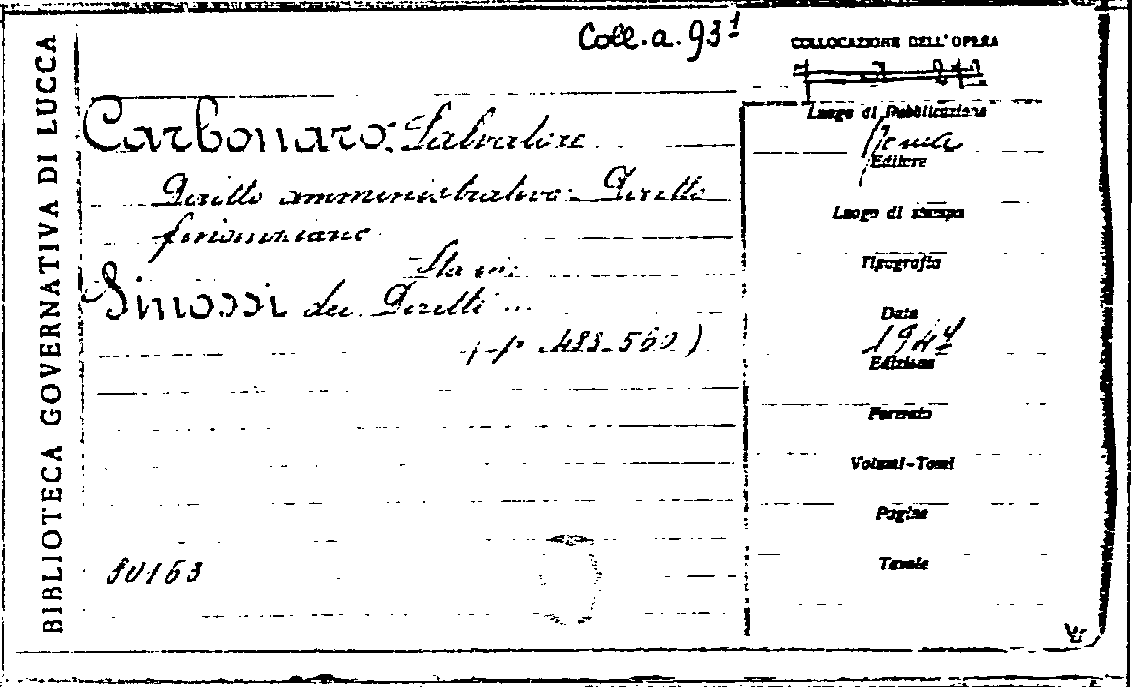 BIBLIOTECA GOVERNATIVA DI LUCCA
Coll. a. 93¹
Carbonaro: Salvatore
Diritto amministrativo - Diritto
finanziario
Sta in:
Sinossi dei Diritti ...
pp. 483-560)
80163
COLLOCAZIONE DELL'OPERA
Luogo di Pubblicazione
Roma
Editore
Luogo di stampa
Tipografia
Data
1947
Edizione
Formato
Volumi-Tomi
Pagine
Tavole